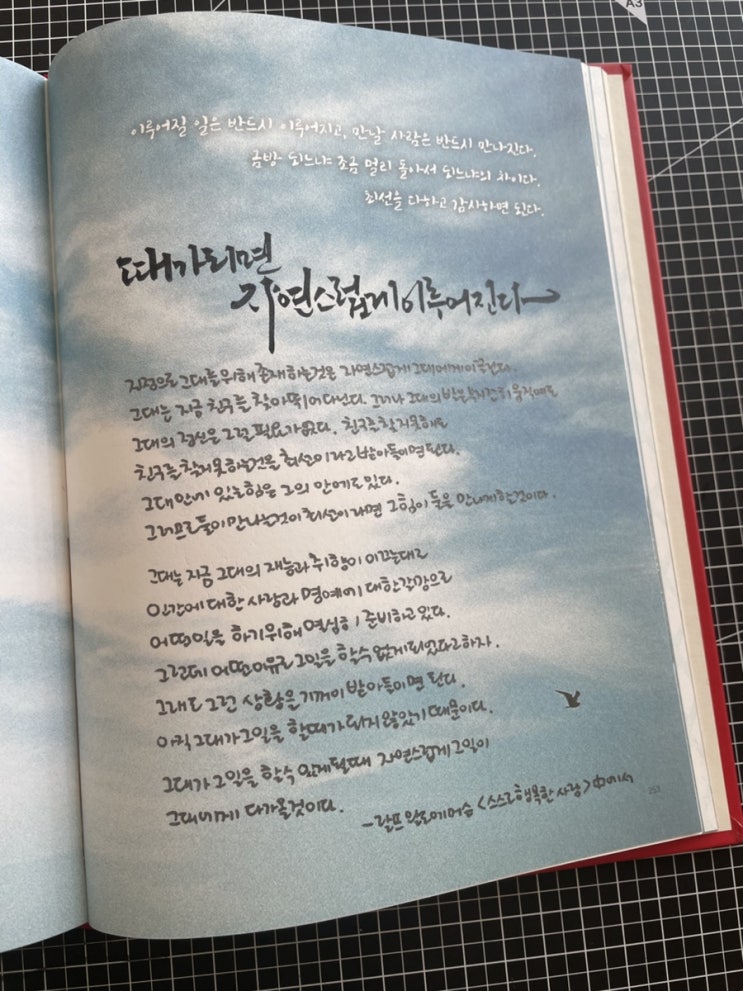 A3
이루어질 일은 반드시 이루어지고, 만날 사람은 반드시 만나진다.
금방 되느냐 조금 멀리 돌아서 되느냐의 차이다.
최선을 다하고 감사하면 된다.
때가되면
자연스럽게이루어진다
진정으로 그대를위해 존재하는것은 자연스럽게 그대에게이끌린다.
그대는 지금 친구를 찾아 뛰어다닌다. 그러나 그대의 발은부지런히 움직여도
그대의 정신은 그럴 필요가없다. 친구를 찾지못해도
친구를 찾지못하는것을 최선이라고받아들이면된다.
그대 안에 있는힘은 그의 안에도 있다.
그러므로 둘이만나는것이 최선이라면 그힘이 둘을 만나게할것이다.
그대는 지금 그대의 재능과 취향이 이끄는대로
인간에 대한 사랑과 명예에 대한갈망으로
어떤일을 하기위해 열심히 준비하고있다.
그런데 어떤이유로 그일을 할수 없게되었다고하자.
그래도 그런 상황은 기꺼이 받아들이면 된다.
아직 그대가 그일을 할때가 되지 않았기 때문이다.
그대가 그일을 할수 있게될때 자연스럽게 그일이
그대에게 다가올것이다.
-랄프 왈도에머슨 <스스로행복한 사람>中에서
253